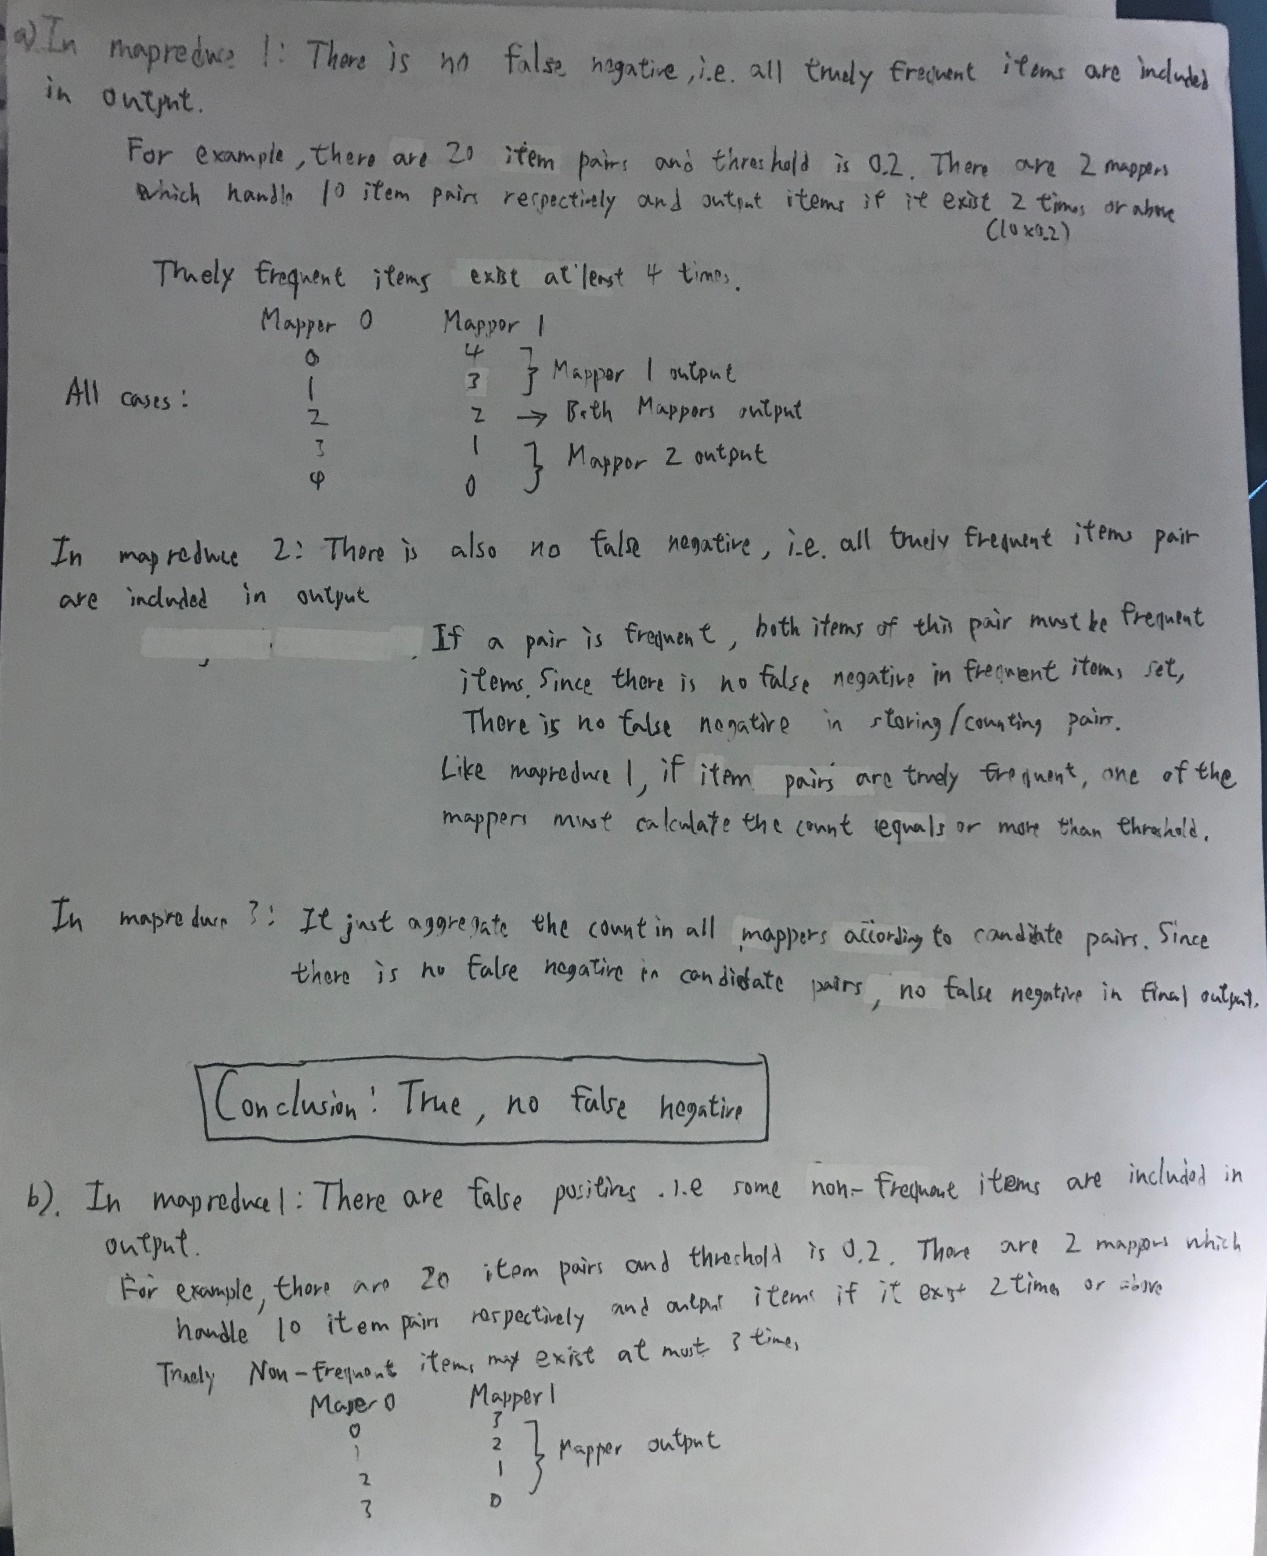 a) In mapreduce 1: There is no false negative, i.e. all truely frequent items are included
in output.
For example, there are 20 item pairs and threshold is 0.2. There are 2 mappers
which handle 10 item pairs respectively and output items if it exist 2 times or above
(10x0.2)
Truely frequent items exist at least 4 times.
Mapper 0 Mapper 1
0 4
} Mapper 1 output
All cases: 1 3
2 2 → Both Mappers output
3 1
} Mapper 2 output
4 0
In mapreduce 2: There is also no false negative, i.e. all truely frequent items pair
are included in output
If a pair is frequent, both items of this pair must be frequent
items. Since there is no false negative in frequent items set,
There is no false negative in storing/counting pairs.
Like mapreduce 1, if item pairs are truely frequent, one of the
mappers must calculate the count equals or more than threshold.
In mapreduce 3: It just aggregate the count in all mappers according to candidate pairs. Since
there is no false negative in candidate pairs, no false negative in final output.
Conclusion: True, no false negative
b). In mapreduce 1: There are false positives. i.e some non-frequent items are included in
output.
For example, there are 20 item pairs and threshold is 0.2. There are 2 mappers which
handle 10 item pairs respectively and output items if it exist 2 times or above
Truely Non-frequent items may exist at most 3 times
Maper 0 Mapper 1
0 3
1 2
} Mapper output
2 1
3 0